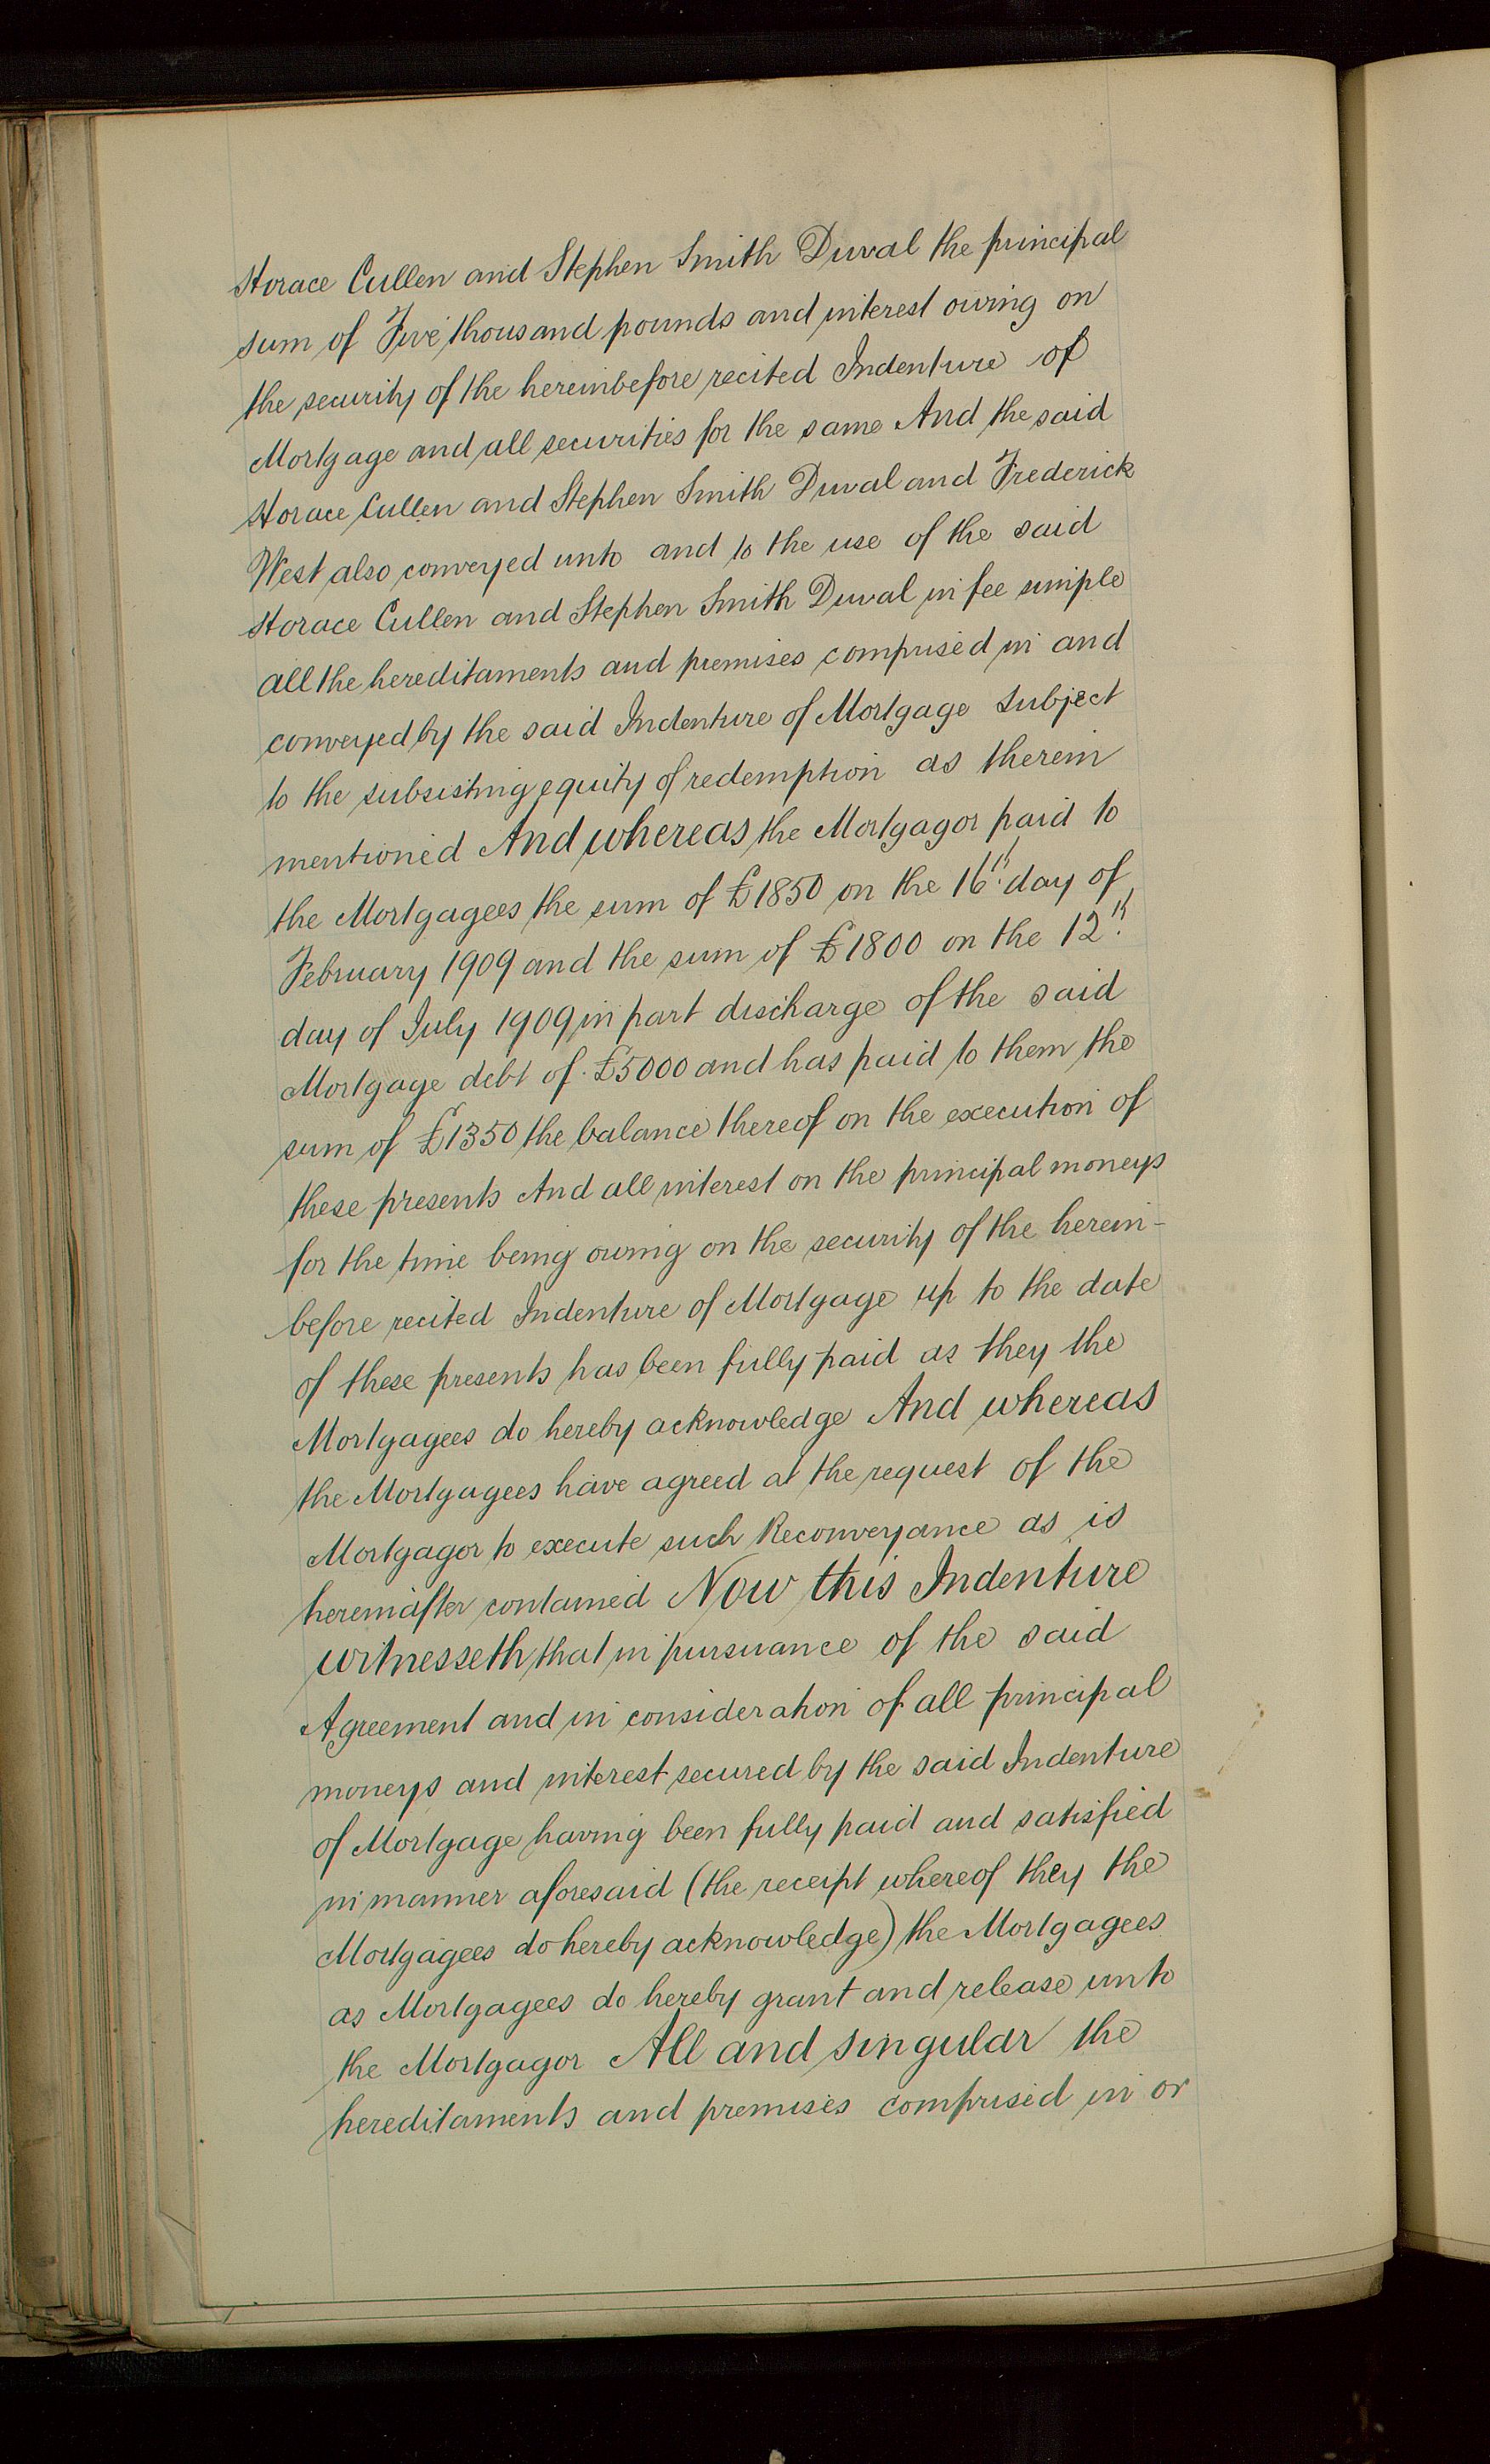 Horace Cullen and Stephen Smith Duval the principal
sum of Five thousand pounds and interest owing on
the security of the hereinbefore recited Indenture of
Mortgage and all securities for the same And the said
Horace Cullen and Stephen Smith Duval and Frederick
West also conveyed unto and to the use of the said
Horace Cullen and Stephen Smith Duval in fee simple
all the hereditaments and premises comprised in and
conveyed by the said Indenture of Mortgage subject
to the subsisting equity of redemption as therein
mentioned And whereas the Mortgagor paid to
the Mortgagees the sum of £1850 on the 16th. day of
February 1909 and the sum of £1800 on the 12th.
day of July 1909 in part discharge of the said
Mortgage debt of £5000 and has paid to them the
sum of £1350 the balance thereof on the execution of
these presents And all interest on the principal moneys
for the time being owing on the security of the herein-
before recited Indenture of Mortgage up to the date
of these presents has been fully paid as they the
Mortgagees do hereby acknowledge And whereas
the Mortgagees have agreed at the request of the
Mortgagor to execute such Reconveyance as is
hereinafter contained Now this Indenture
witnesseth that in pursuance of the said
Agreement and in consideration of all principal
moneys and interest secured by the said Indenture
of Mortgage having been fully paid and satisfied
in manner aforesaid (the receipt whereof they the
Mortgagees do hereby acknowledge) the Mortgagees
as Mortgagees do hereby grant and release unto
the Mortgagor All and singular the
hereditaments and premises comprised in or